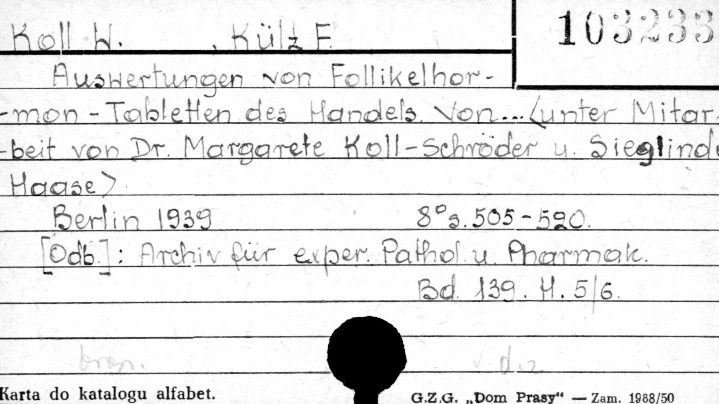 Koll W. , Külz F. 103233
Auswertungen von Follikelhor-
-mon-Tabletten des Handels. Von... (unter Mitar-
-beit von Dr. Margarete Koll-Schröder u. Sieglinde
Haase)
Berlin 1939 8° s. 505-520.
[Odb.]: Archiv für exper. Pathol. u. Pharmak.
Bd. 139. H. 5/6.
Karta do katalogu alfabet. G.Z.G. „Dom Prasy" — Zam. 1988/50